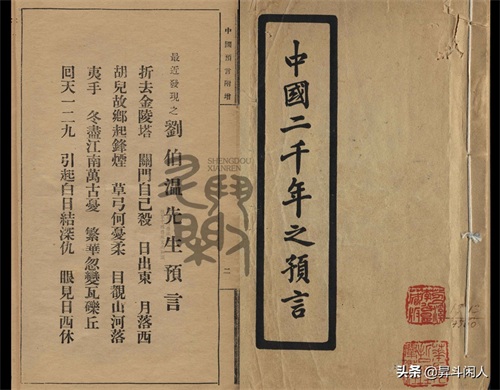 中國二千年之預言
中國預言附增
二
最近發現之
劉伯温先生預言
折去金陵塔 關門自己殺 日出東 月落西
胡兒故鄉起鋒煙 草弓何憂柔 目觀山河落
夷手 冬盡江南萬古憂 繁華忽變瓦礫丘
回天一二九 引起白日結深仇 眼見日西休
SHENGDOU
XIANREN
头条 @昇斗闲人